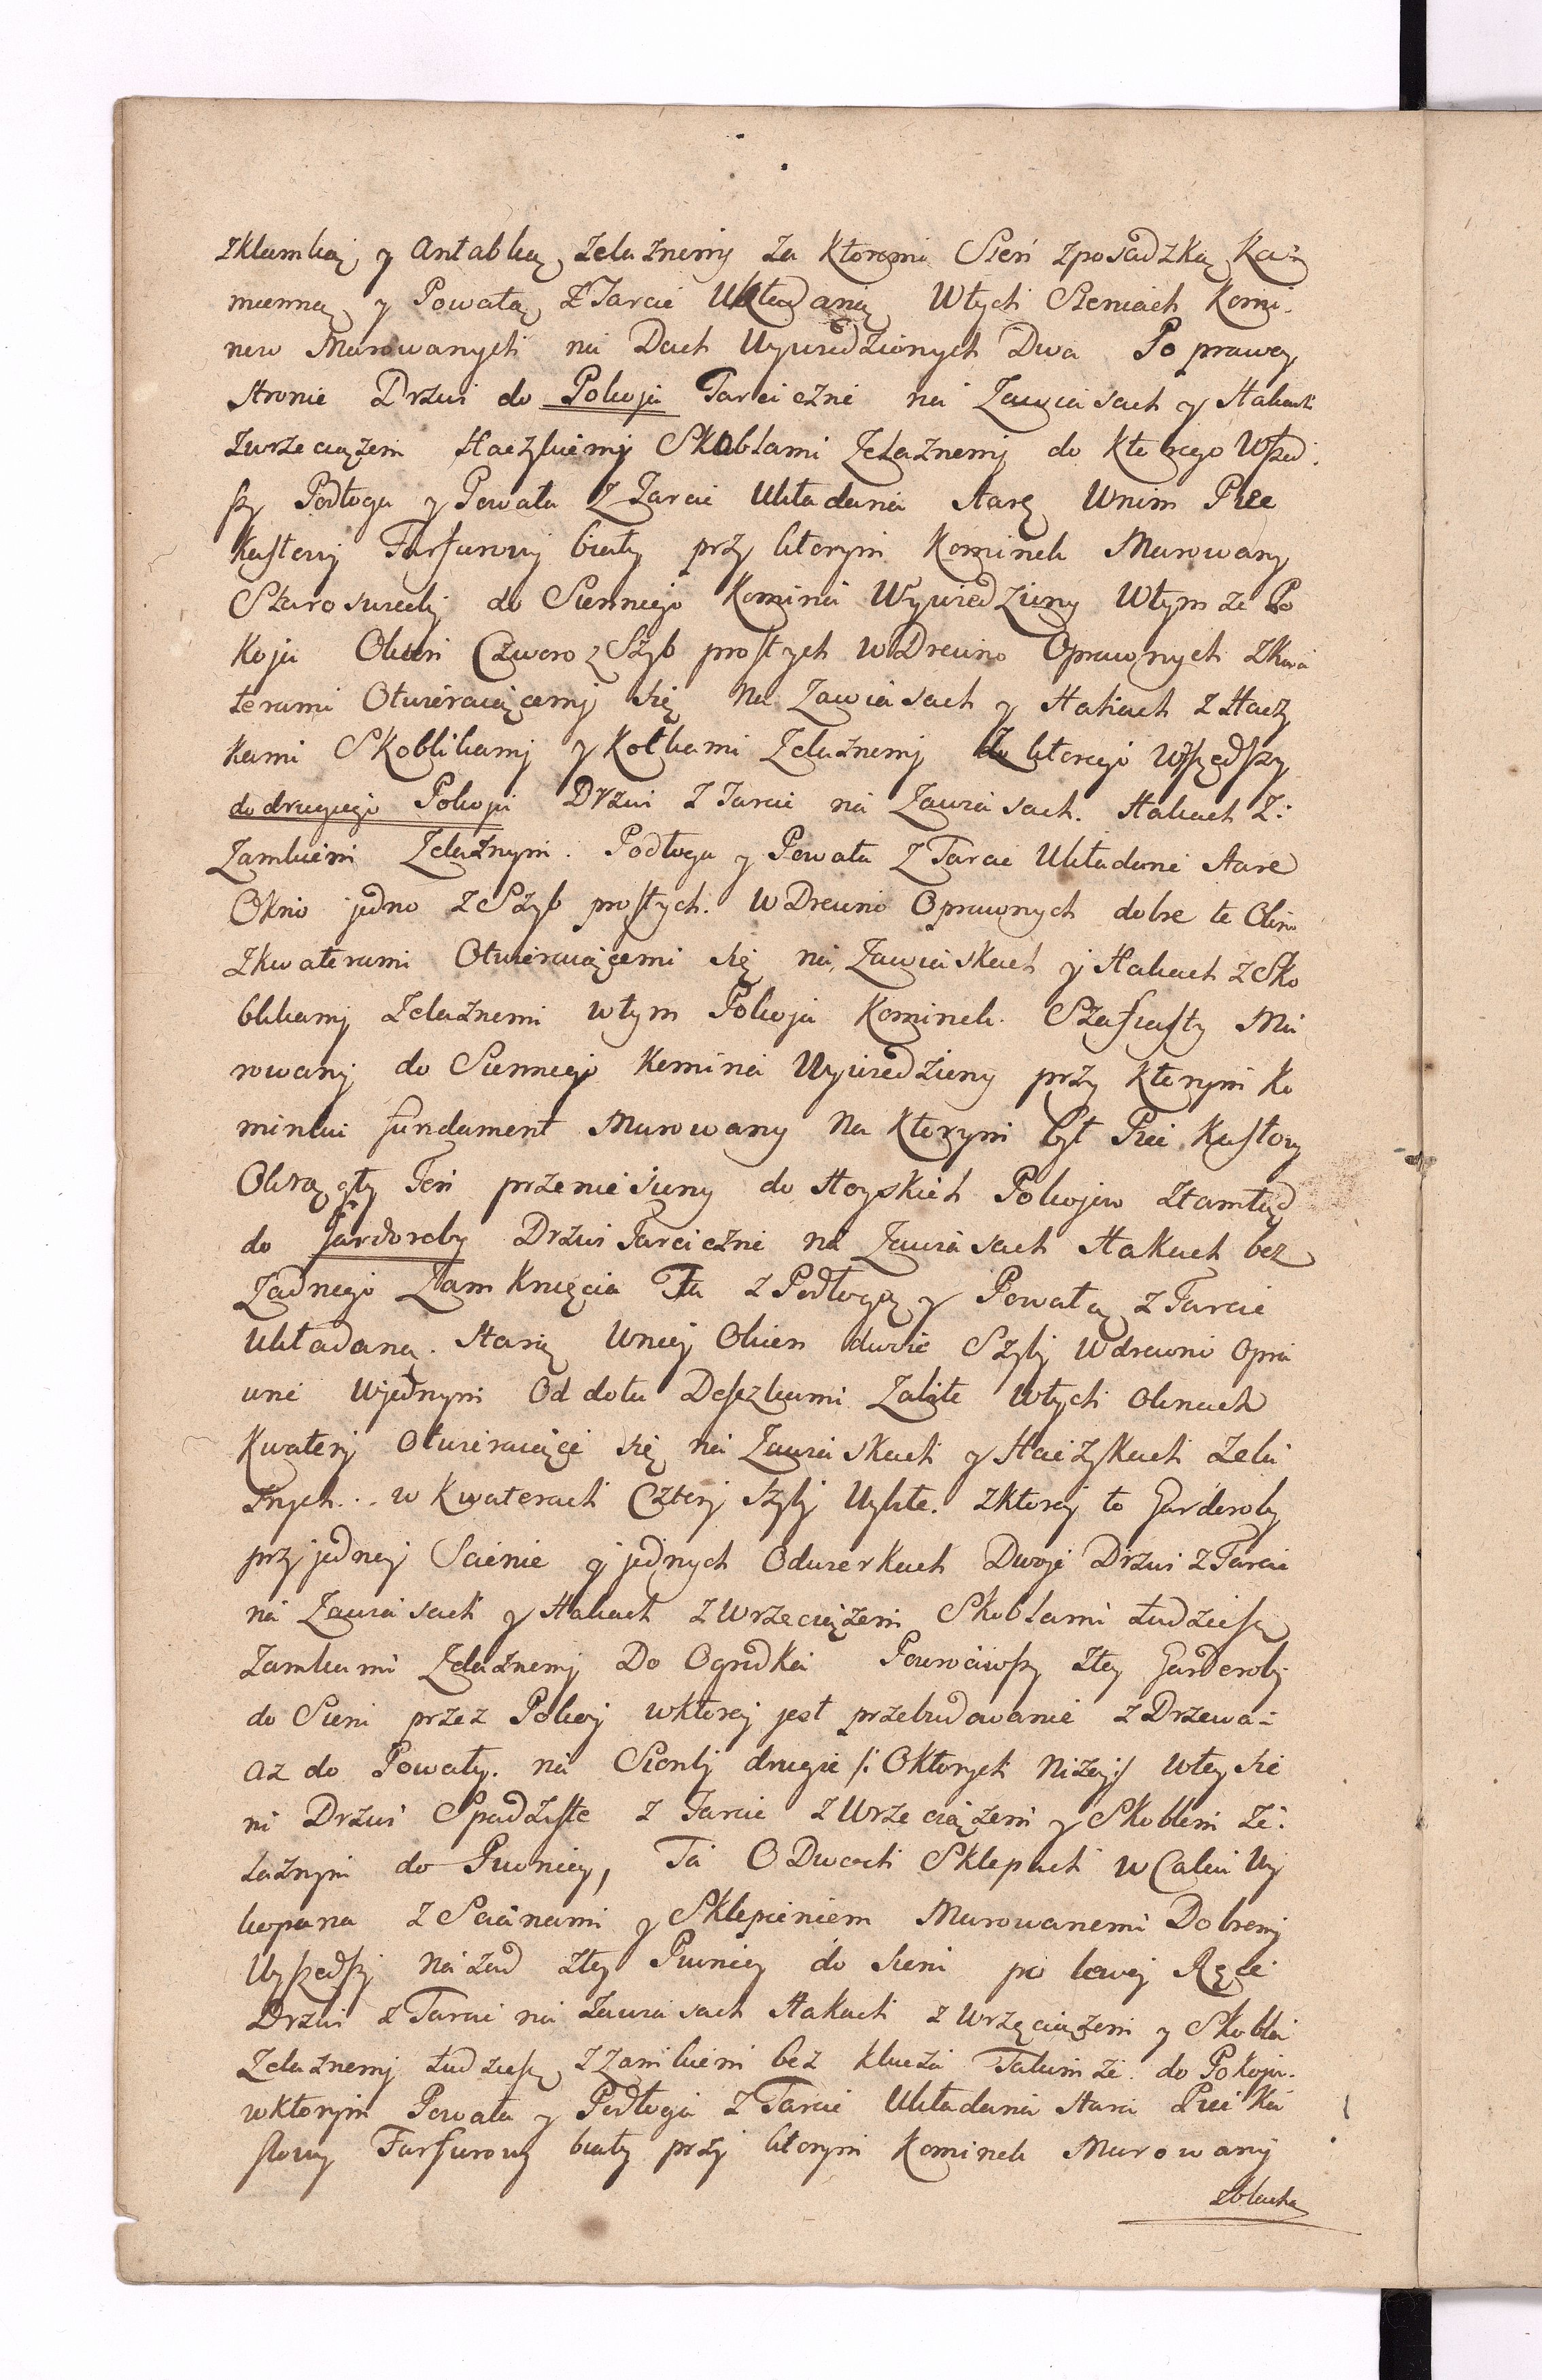 zklamką y antabką żelaznemy za ktoremi Sień z posadzką Ka=
mienną y Powałą z Tarcic Układaną Wtych Sieniach Komi-
now Murowanych na Dach Wywiedzionych Dwa Po prawey
stronie Drzwi do Pokoju Tarciczne na Zawiasach y Hakach
zwrzeciązem Haczkiemy Skoblami Żelaznemy do ktorego Wszed-
szy Podłoga y Powała z Tarcic Układana starą Wnim Piec
kaflowy Farfurowy biały przy ktorym Kominek Murowany
Staroswiecky do Sienniego Komina Wywiedziony Wtymze Po
koju Okien Czworo z Szyb prostych w Drewno Oprawnych z kwa
terami Otwieraiącemy się na Zawiasach y Hakach z Hacz
kami Skoblikamy y Kołkami Żelaznemy Z ktorego Wszedszy
do drugiego Pokoju Drzwi z Tarcic na Zawiasach. Hakach z:
Zamkiem Żelaznym. Podłoga y Powała z Tarcic Układane stare
Okno jedno z Szyb prostych. w Drewno Oprawnych dobre te Okno
zkwaterami Otwieraiącemi się na Zawiaskach y Hakach z Sko
blikamy Żelaznemi wtym Pokoju Kominek. Szafiasty Mu
rowany do Sienniego Komina Wywiedziony przy ktorym Ko
minku fundament Murowany na ktorym był Piec Kaflowy
Okrągły Ten przeniesiony do Hoyskich Pokojow ztamtąd
do Gardoroby Drzwi Tarciczne na Zawiasach Hakach bez
Żadnego Zamknięcia Ta z Podłogą y Powałą z Tarcic
Układaną. Starą Wniey Okien dwoie Szyby Wdrewno opra
wne Wjednym Od dołu Deszkami Zabite Wtych oknach
Kwatery otwieraiące się na Zawiaskach y Haczykach żela
znych... w Kwaterach Cztery szyby Wybite. zktorey to Garderoby
przy jedney Scienie y jednych Odwerkach Dwoje Drzwi z Tarcic
na Zawiasach y Hakach z Wrzeciązem Skoblami tudziesz
Zamkami Żelaznemy Do Ogrodka Powrociwszy ztey Garderoby
do Sieni przez Pokoy wktorey jest przebudowanie z Drzewa=
az do Powały. na Sionky drugie /: Oktorych niżey :/ Wtey sie
ni Drzwi Spadziste z Tarcic z Wrzeciązem y Skoblem że:
laznym do Piwnicy, Ta O Dwoch Sklepach w Calcu Wy
kopana z Scianami y Sklepieniem Murowanemi Dobremy
Wyszedszy nazad ztey Piwnicy do sieni po lewey Ręce
Drzwi z Tarcic na Zawiasach Hakach z Wrzęciązem y Skobla
Żelaznemy tudziesz z Zamkiem bez klucza Takimze do Pokoju.
wktorym Powała y Podłoga z Tarcic Układana stara Piec Ka
flowy Farfurowy biały przy ktorym Kominek Murowany
zblacha